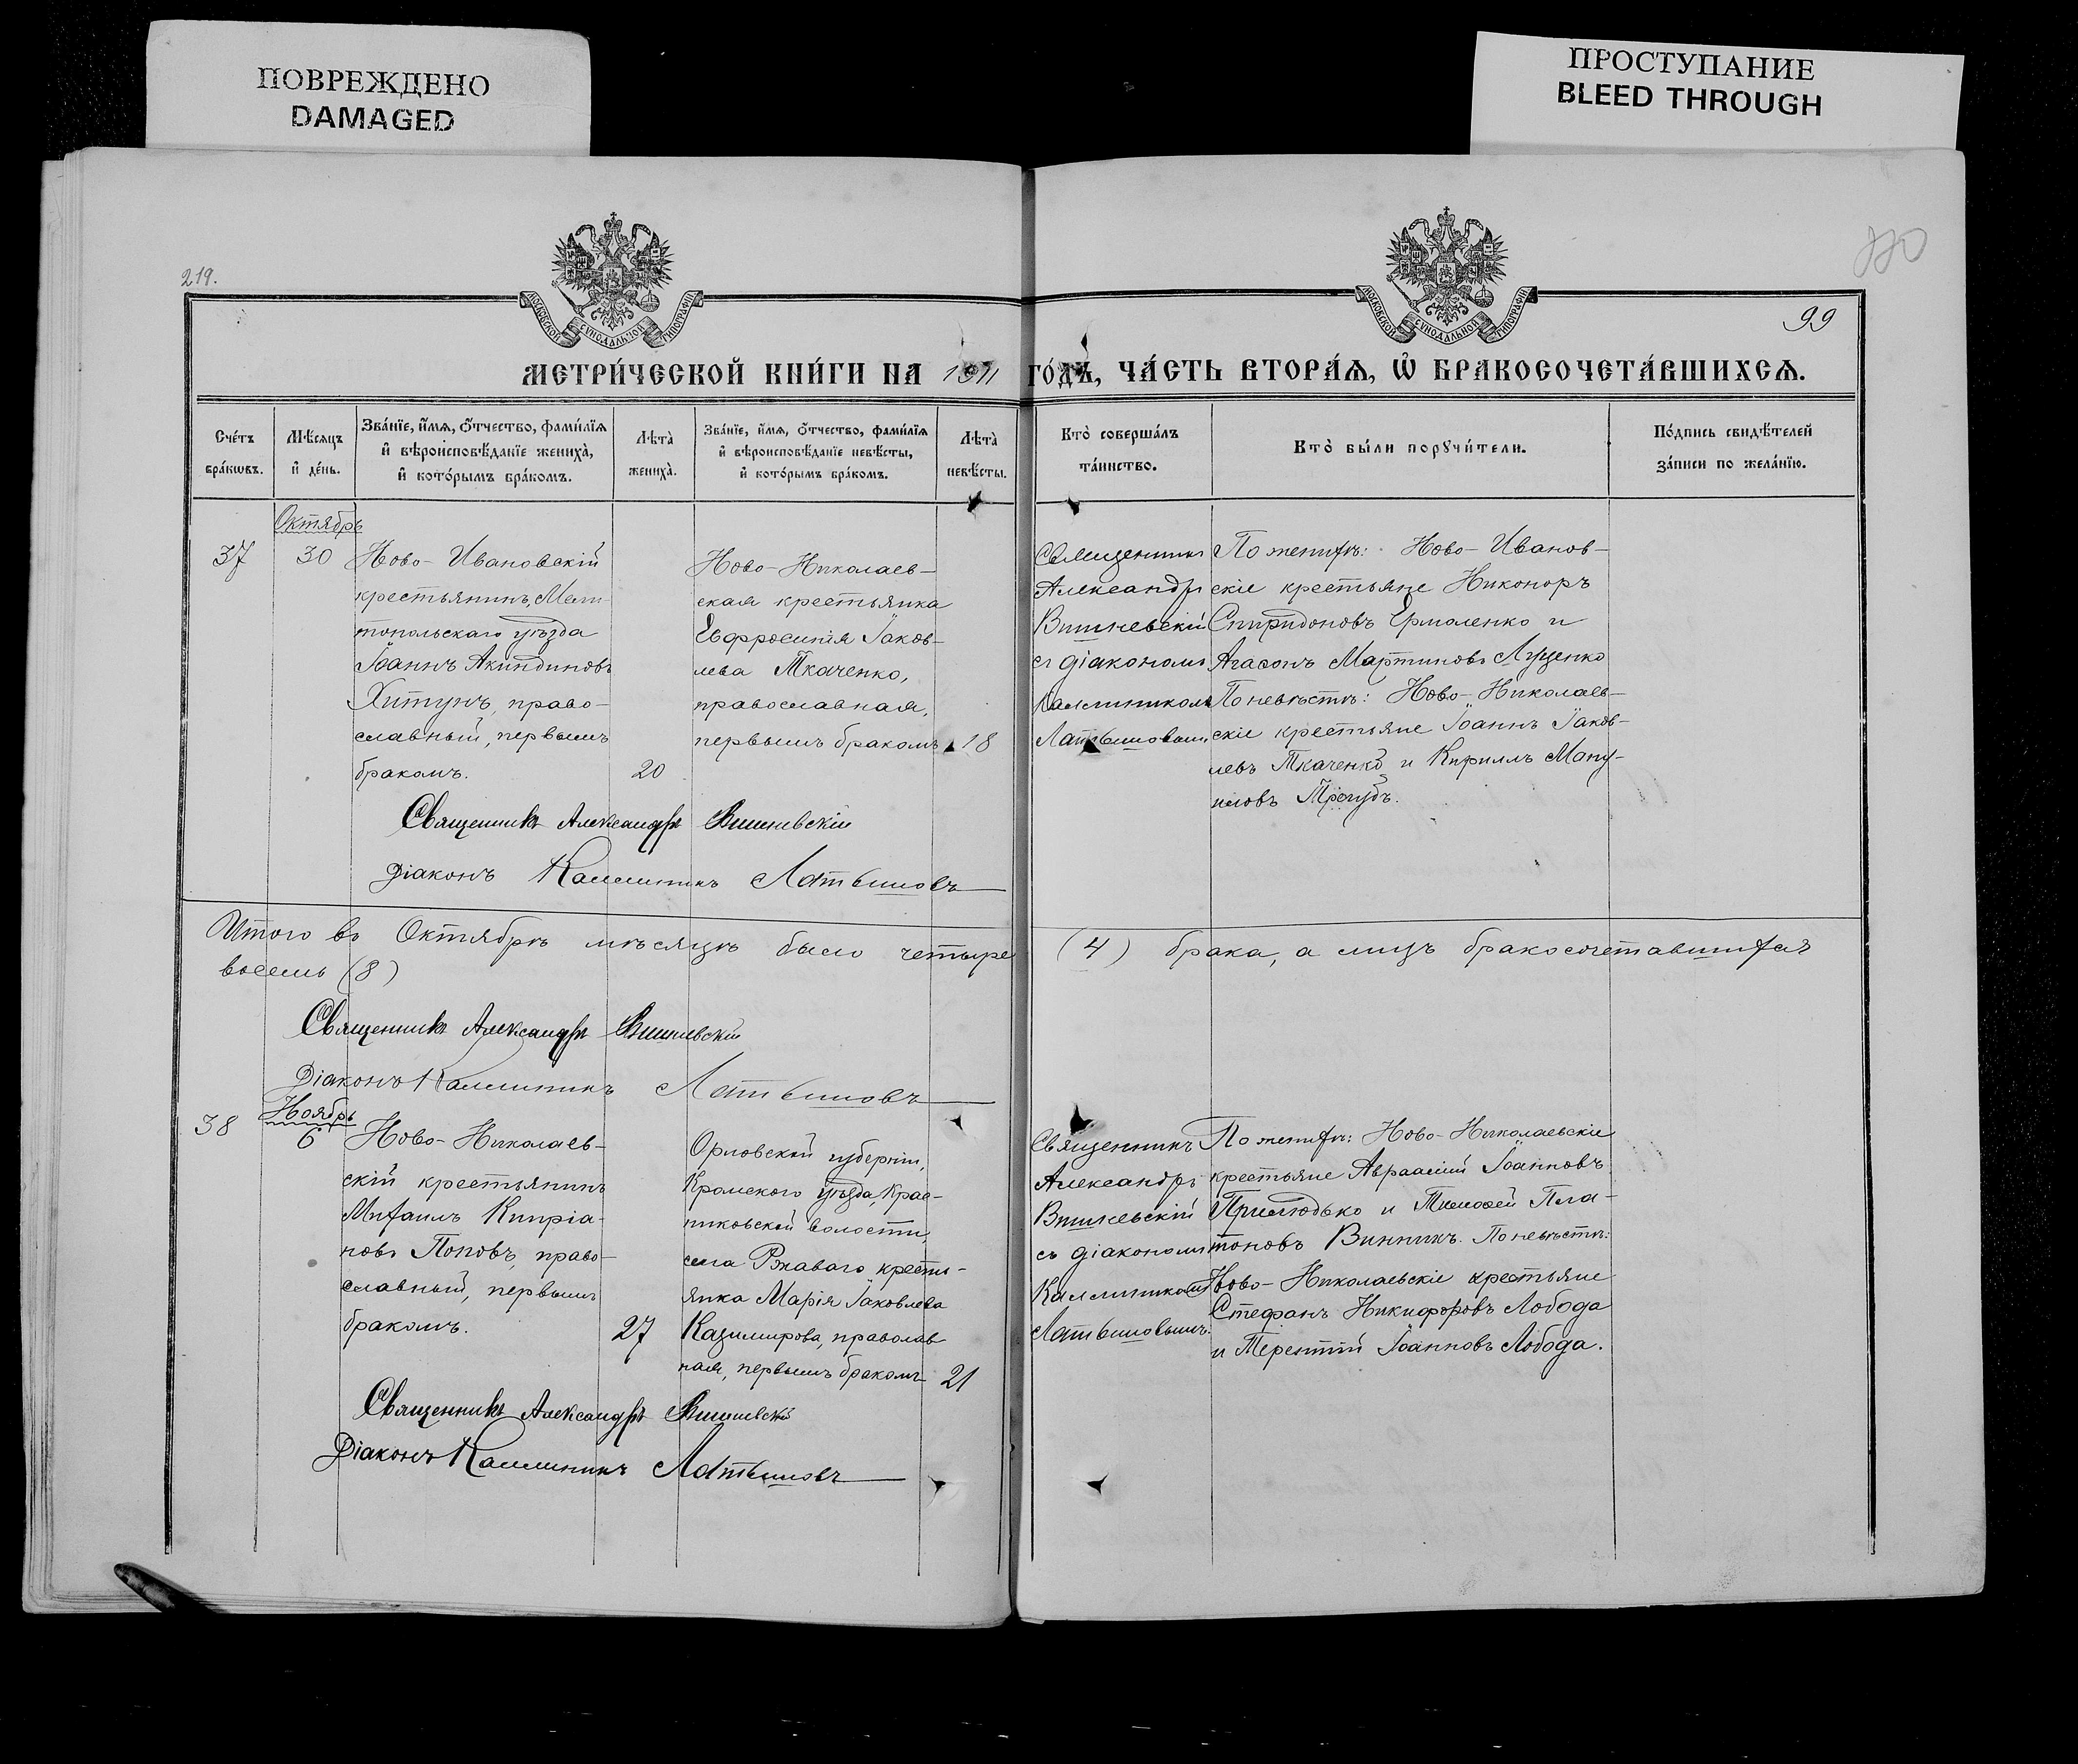 ПОВРЕЖДЕНО
DAMAGED
ПРОСТУПАНИЕ
BLEED THROUGH
219.
МОСКОВСКОЙ СѴНОДАЛЬНОЙ ТИПОГРАФІИ
МОСКОВСКОЙ СѴНОДАЛЬНОЙ ТИПОГРАФІИ
99
МЕТРИ́ЧЕСКОЙ КНИ́ГИ НА 1911 ГО́ДЪ, ЧА́СТЬ ВТОРА́Ѧ, Ѡ҆ БРАКОСОЧЕТА́ВШИХСѦ.
Сче́тъ
бра́кѡвъ.
Мѣ́сяцъ
и҆ де́нь.
Зва́нїе, и҆́мя, ѻ҆́тчество, фами́лїя
и҆ вѣроисповѣ́данїе жениха̀,
и҆ кото́рымъ бра́комъ.
Лѣта̀
жениха̀.
Зва́нїе, и҆́мя, ѻ҆́тчество, фами́лїя
и҆ вѣроисповѣ́данїе невѣ́сты,
и҆ кото́рымъ бра́комъ.
Лѣта̀
невѣ́сты.
Кто̀ соверша́лъ
та́инство.
Кто̀ бы́ли порꙋчи́тели.
По́дпись свидѣ́телей
за́писи по жела́нїю.
Октябрь
37
30
Ново-Ивановскій
крестьянинъ, Мели-
топольскаго уѣзда
Іоаннъ Акиндиновъ
Хитунъ, право-
славный, первымъ
бракомъ.
20
Ново-Николаев-
ская крестьянка
Евфросинія Іаков-
лева Ткаченко,
православная,
первымъ бракомъ
18
Священникъ
Александръ
Вишневскій
съ діакономъ
Каллиникомъ
По женихѣ: Ново-Иванов-
скіе крестьяне Никоноръ
Спиридоновъ Ермоленко и
Агафонъ Мартиновъ Луценко
По невѣстѣ: Ново-Николаев-
скіе крестьяне Іоаннъ Іаков-
левъ Ткаченко и Кириллъ Ману-
иловъ
Священникъ Александръ Вишневскій
Діаконъ Каллиникъ
Итого въ Октябрѣ мѣсяцѣ было четыре (4) брака, а лицъ бракосочетавшихся
восемь (8)
Священникъ Александръ Вишневскій
Діаконъ Каллиникъ
Ноябрь
38
6
Ново-Николаев-
скій крестьянинъ
Михаилъ Кипріа-
новъ Поповъ, право-
славный, первымъ
бракомъ.
27
Орловской губерніи,
Кромского уѣзда,
волости,
села Ржаваго кресть-
янка Марія Іаковлева
Казимирова, православ
ная, первымъ бракомъ
21
Священникъ
Александръ
Вишневскій
съ діакономъ
Каллиникомъ
По женихѣ: Ново-Николаевскіе
крестьяне Авраамій Іоанновъ
Прилюдько и Тимофей Пла-
тоновъ Винникъ. По невѣстѣ:
Ново-Николаевскіе крестьяне
Стефанъ Никифоровъ Лобода
и Терентій Іоанновъ Лобода.
Священникъ Александръ Вишневскій
Діаконъ Каллиникъ